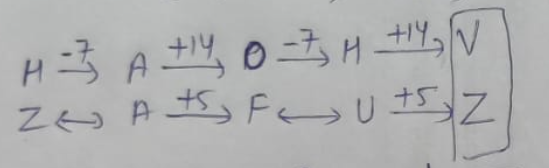 H -7→ A +14→ O -7→ H +14→ V
Z ↔ A +5→ F ↔ U +5→ Z